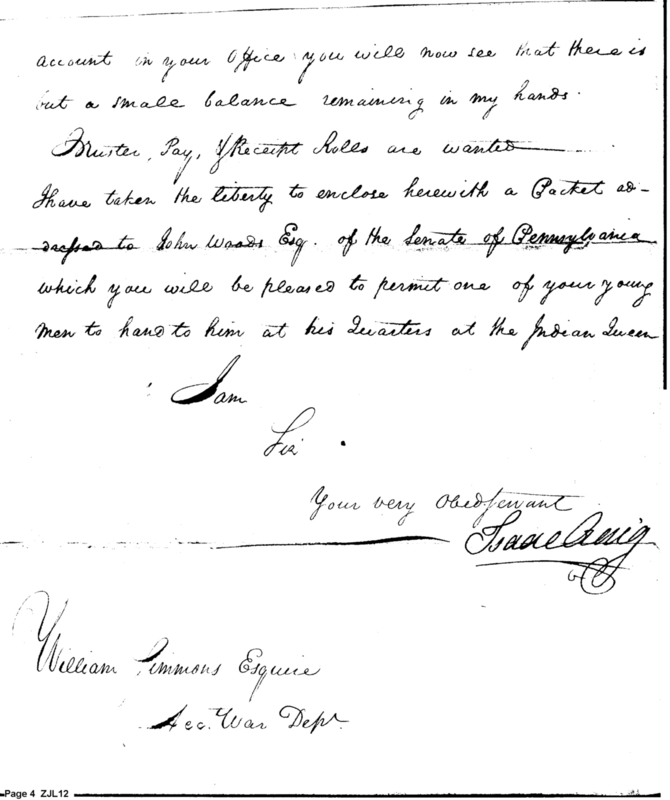 account in your Office you will now see that there is
but a small balance remaining in my hands.
Muster, Pay, & Receipt Rolls are wanted
I have taken the liberty to enclose herewith a Packet ad-
dressed to John Woods Esq. of the Senate of Pennsylvania
which you will be pleased to permit one of your young
men to hand to him at his Quarters at the Indian Queen
I am
Sir
Your very Obed Servant
Isaac Craig
William Simmons Esquire
Acc. War Dept.
Page 4 ZJL12